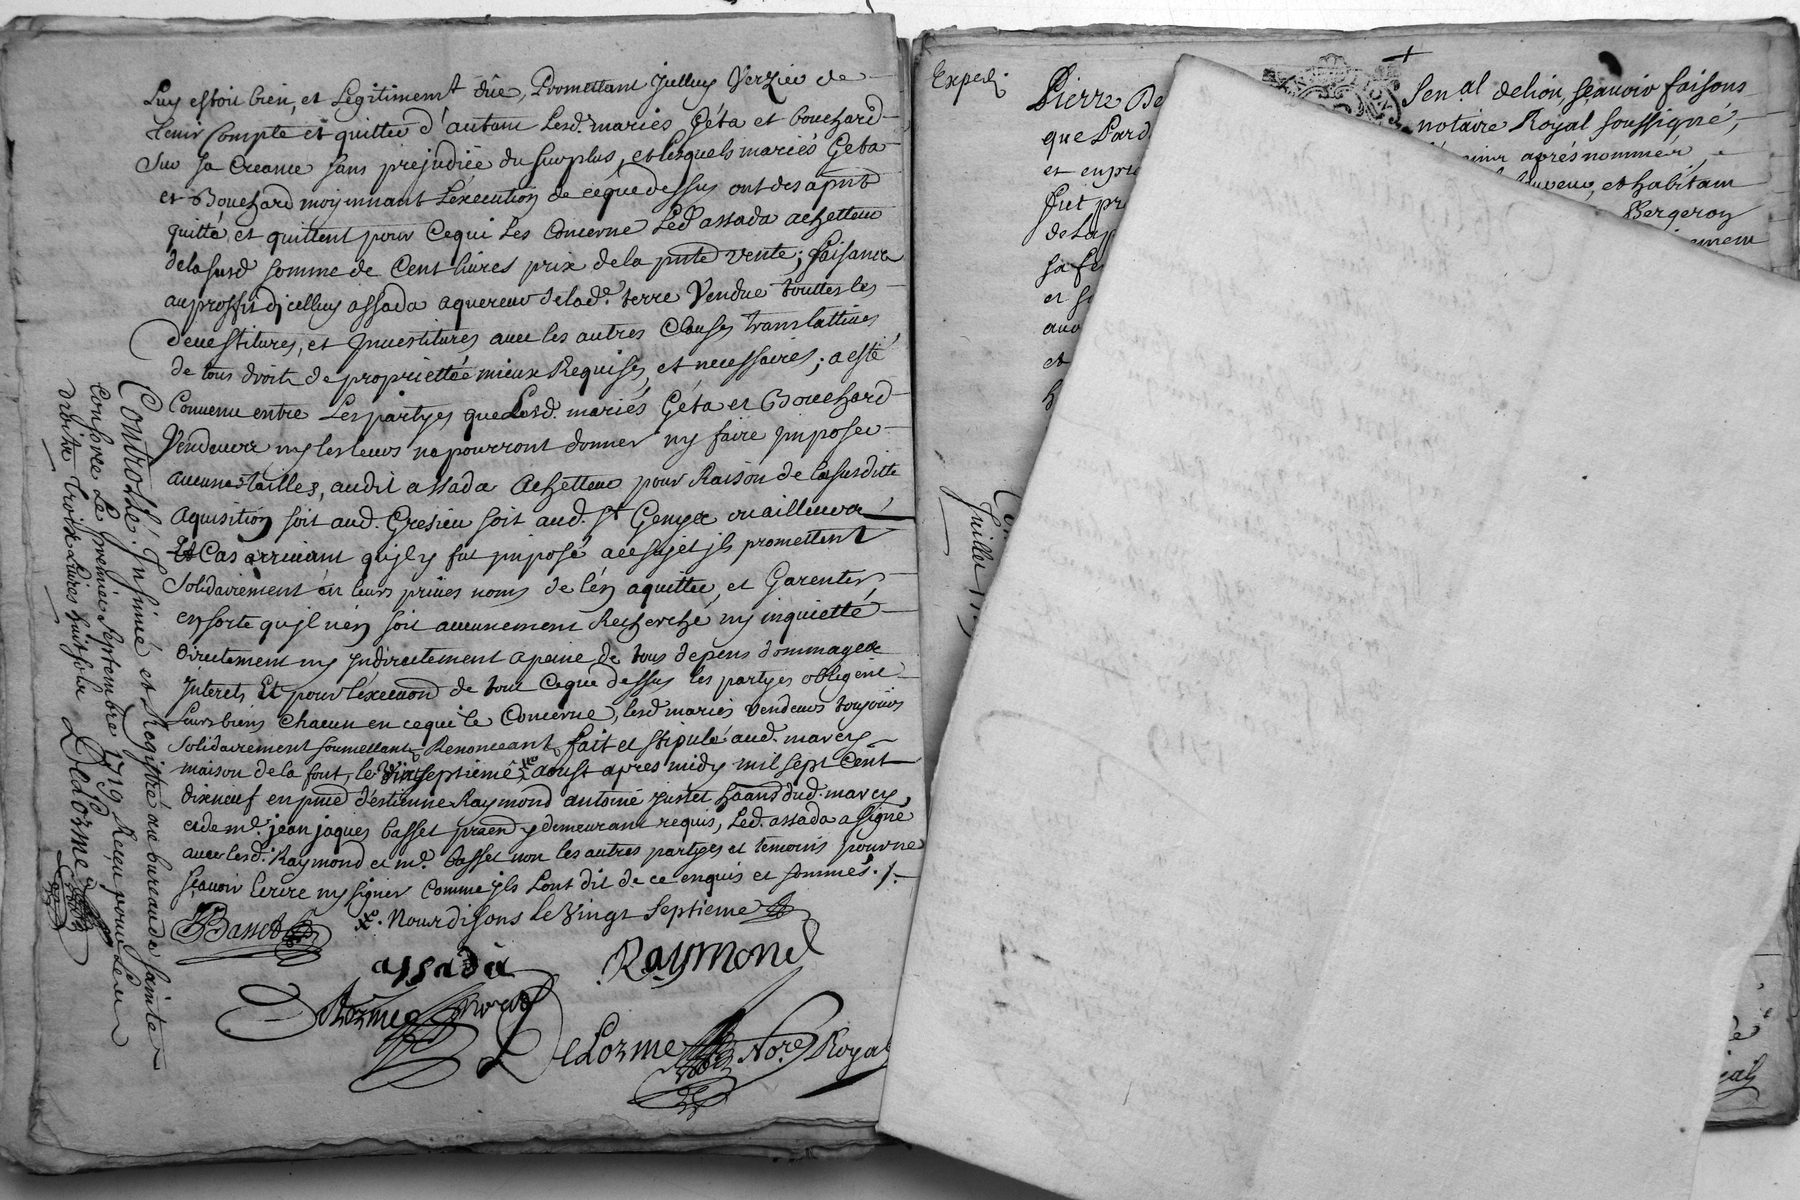 Luy estoit bien, et Legitimemt düe, Promettant Jcelluy Verzieu de
tenir Compte et quitter d'autant Lesd. mariés Géta et bouchard
sur sa Creance sans prejudice du surplus, et lesquels mariés Geta
et Bouchard moyennant L'execution de ceque dessus ont des apnt
quitté, et quittent pour Cequi Les Concerne Led assada achetteur
dela susd somme de Cent livres prix de la pnte vente; faisance
au proffit d'jcelluy assada aquereur de lad. terre Vendue touttes les
devestitures, et Jnvestitures avec les autres Clauses translattives
de tous droits de propriettéé mieux Requises, et necessaires; a esté
Convenu entre Les partyes que Lesd. mariés Géta et Bouchard
Vendeurs ny les leurs ne pourront donner ny faire jmposer
aucunes tailles, audit assada Achetteur pour Raison de la susditte
Aquisition soit aud. Gresieu soit aud. St Genys ou ailleurs
Et Cas arrivant qu'jl y fut jmposé a ce sujet jls promettent
Solidairement en leurs privés noms de l'en aquitter, et Garentir,
en sorte qu'jl n'en soit aucunement Recherché ny inquietté
directement ny jndirectement a peine de tous depens dommages
jnterets Et pour l'execuon de tout Ceque dessus les partyes obligent
Leurs biens Chacun en cequi le Concerne, lesd mariés vendeurs toujours
Solidairement soumettant Renonceant, fait et stipulé aud. marcy
maison de la font, le dixseptieme aoust apres midy mil sept Cent
dixneuf en pnce d'estienne Raymond antoine justet haans dud. marcy
et de me. jean jaques basset praen y demeurant requis, Led. assada a signé
avec lesd. Raymond et me. basset non les autres partyes et temoins pour ne
sçavoir Ecrire ny signer Comme jls L'ont dit de ce enquis et sommés ./.
x. Nous disons Le Vingt Septieme
JJBasset
assada
Raymond
Delorme
DeLorme Nore. Royal
Controllé. Jnsinué et Registré au bureau de sainte
Consorce Le premier Septembre 1719 Receu pour Le
droits trois Livres huit sols DeLorme
Expedi.
Pierre De
que Pard
et en pre
fut pr
de La p
sa fe
et s
avo
et
Juillet 17
Sen.al de lion, sçavoir faisons
notaire Royal soussigné,
aprés nommés,
et habitant
Bergeron